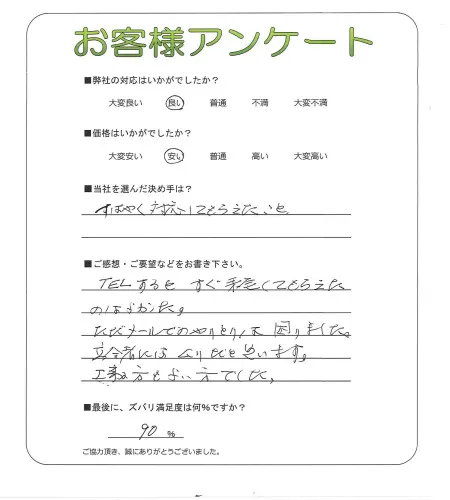 お客様アンケート
■弊社の対応はいかがでしたか？
大変良い 良い 普通 不満 大変不満
■価格はいかがでしたか？
大変安い 安い 普通 高い 大変高い
■当社を選んだ決め手は？
すばやく対応してもらえたこと
■ご感想・ご要望などをお書き下さい。
TELするとすぐ してもらえた
のはよかった。
ただメールでのやりとりは困りました。
は と思います。
方もよい方でした。
■最後に、ズバリ満足度は何%ですか？
90 %
ご協力頂き、誠にありがとうございました。